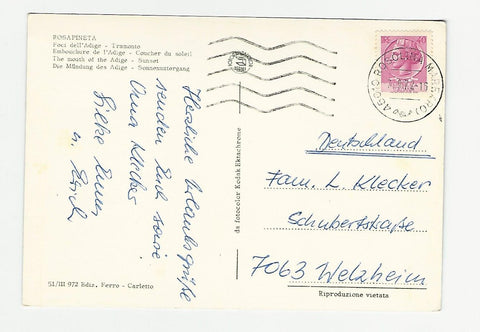 ROSAPINETA
Foci dell'Adige - Tramonto
Embouchure de l'Adige - Coucher du soleil
The mouth of the Adige - Sunset
Die Mündung des Adige - Sonnenuntergang
Herzliche Urlaubsgrüße
senden Euch sowie
Oma Klecker
Silke
u. Erich
51/III 972 Ediz. Ferro - Carletto
da fotocolor Kodak Ektachrome
40
45010 ROSOLINA MARE (RO)
Deutschland
Fam. L. Klecker
Schubertstraße
7063 Welzheim
Riproduzione vietata